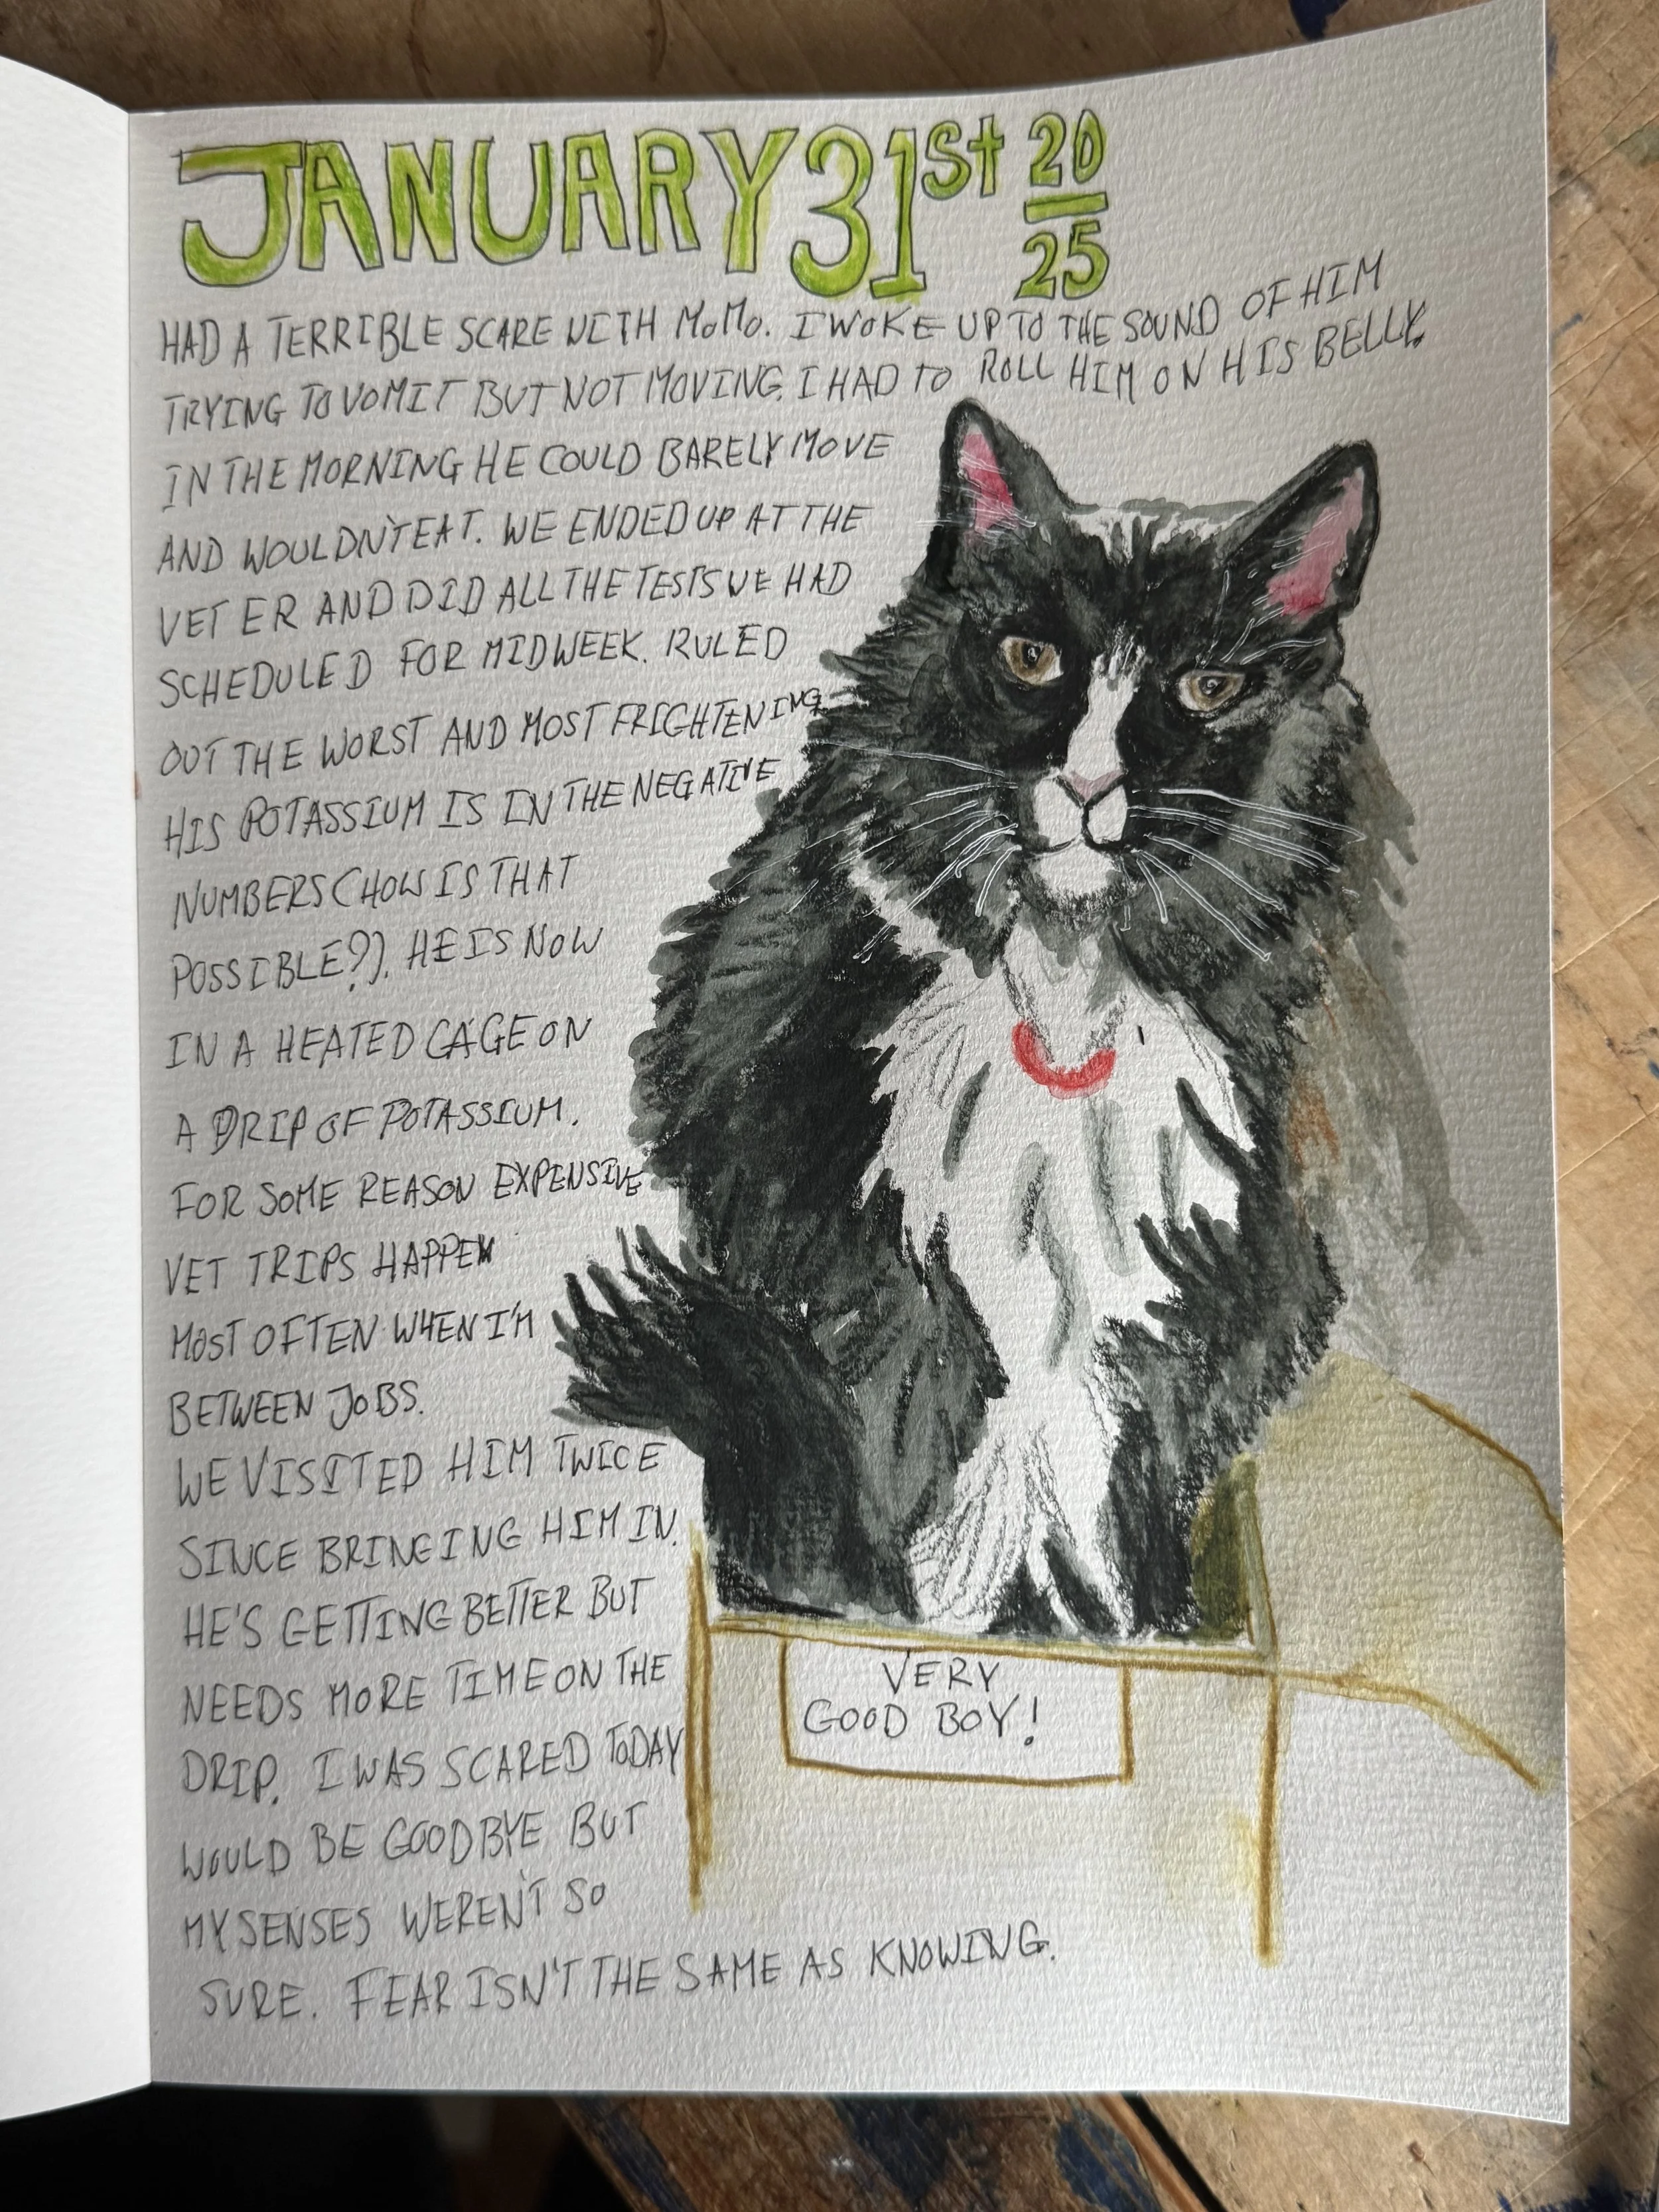 JANUARY 31st 20
25
HAD A TERRIBLE SCARE WITH MoMo. I WOKE UP TO THE SOUND OF HIM
TRYING TO VOMIT BUT NOT MOVING. I HAD TO ROLL HIM ON HIS BELLY.
IN THE MORNING HE COULD BARELY MOVE
AND WOULDN'T EAT. WE ENDED UP AT THE
VET ER AND DID ALL THE TESTS WE HAD
SCHEDULED FOR MIDWEEK. RULED
OUT THE WORST AND MOST FRIGHTENING.
HIS POTASSIUM IS IN THE NEGATIVE
NUMBERS (HOW IS THAT
POSSIBLE?). HE IS NOW
IN A HEATED CAGE ON
A DRIP OF POTASSIUM.
FOR SOME REASON EXPENSIVE
VET TRIPS HAPPEN
MOST OFTEN WHEN I'M
BETWEEN JOBS.
WE VISITED HIM TWICE
SINCE BRINGING HIM IN.
HE'S GETTING BETTER BUT
NEEDS MORE TIME ON THE
DRIP. I WAS SCARED TODAY
WOULD BE GOODBYE BUT
MY SENSES WEREN'T SO
SURE. FEAR ISN'T THE SAME AS KNOWING.
VERY
GOOD BOY!